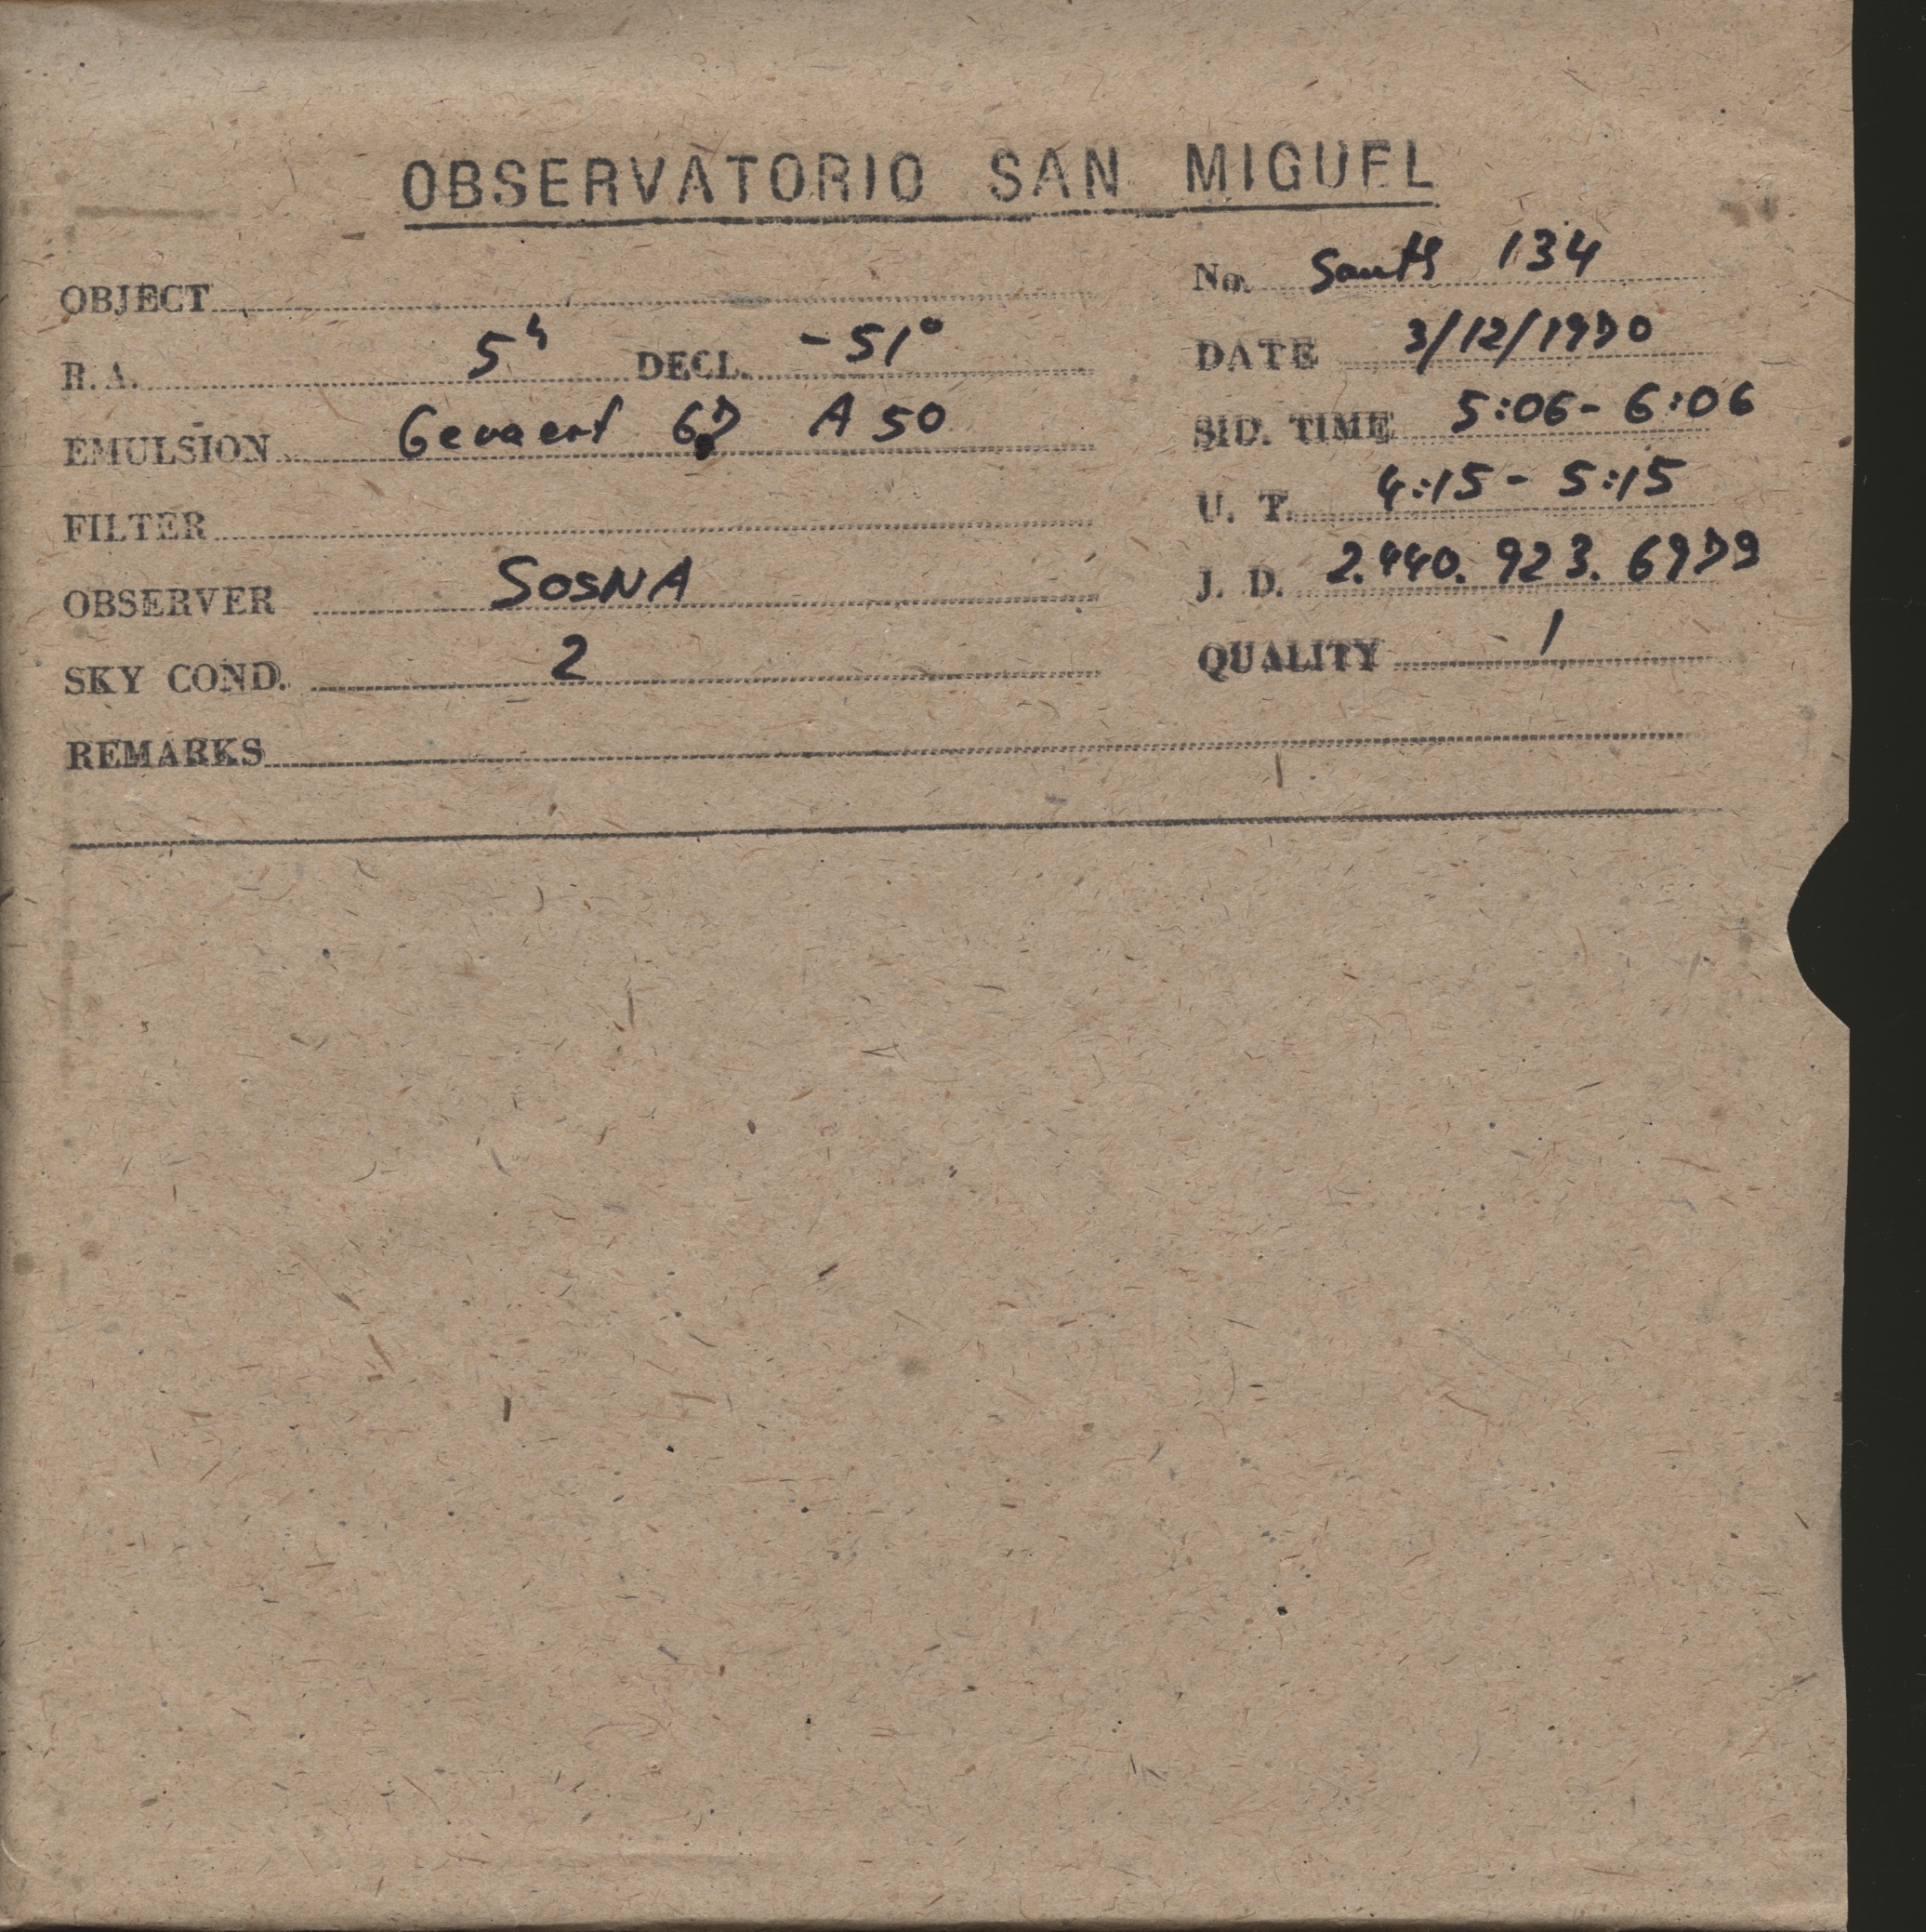 OBSERVATORIO SAN MIGUEL
OBJECT
No. South 134
R. A. 5h DECL. -51°
DATE 3/12/1970
EMULSION Gevaert 67 A 50
SID. TIME 5:06 - 6:06
FILTER
U. T. 4:15 - 5:15
OBSERVER SOSNA
J. D. 2.440.923.6979
SKY COND. 2
QUALITY 1
REMARKS